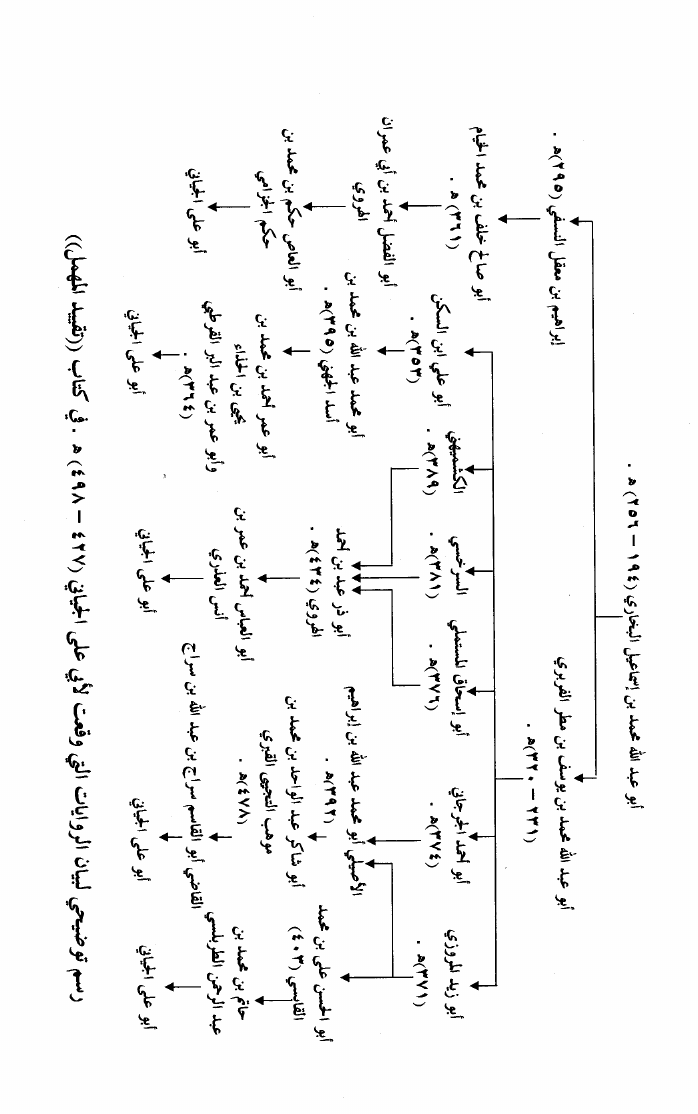 أبو عبد الله محمد بن إسماعيل البخاري (١٩٤ – ٢٥٦) هـ .
إبراهيم بن معقل النسفي (٢٩٥) هـ .
أبو عبد الله محمد بن يوسف بن مطر الفربري
(٢٣١ – ٣٢٠) هـ .
أبو صالح خلف بن محمد الخيام
(٣٦١) هـ .
أبو علي ابن السكن
(٣٥٣) هـ .
الكشميهني
(٣٨٩) هـ .
السرخسي
(٣٨١) هـ .
أبو إسحاق المستملي
(٣٧٦) هـ .
أبو أحمد الجرجاني
(٣٧٤) هـ .
أبو زيد المروزي
(٣٧١) هـ .
أبو الفضل أحمد بن أبي عمران
الهروي
أبو محمد عبد الله بن محمد بن
أسد الجهني (٣٩٥) هـ .
أبو ذر عبد بن أحمد
الهروي (٤٣٤) هـ .
الأصيلي أبو محمد عبد الله بن إبراهيم
(٣٩٢) هـ .
أبو الحسن علي بن محمد
القابسي (٤٠٣)
أبو العاص حكم بن محمد بن
حكم الجزامي
أبو عمر أحمد بن محمد بن
يحيى بن الحذاء
وأبو عمر بن عبد البر القرطبي
(٣٦٤) هـ .
أبو العباس أحمد بن عمر بن
أنس العذري
أبو شاكر عبد الواحد بن محمد بن
موهب التجيبي القبري
(٤٧٨) هـ .
القاضي أبو القاسم سراج بن عبد الله بن سراج
حاتم بن محمد بن
عبد الرحمن الطربلسي
أبو علي الجياني
أبو علي الجياني
أبو علي الجياني
أبو علي الجياني
أبو علي الجياني
رسم توضيحي لبيان الروايات التي وقعت لأبي علي الجياني (٤٢٧ – ٤٩٨) هـ . في كتاب ((تقييد المهمل))